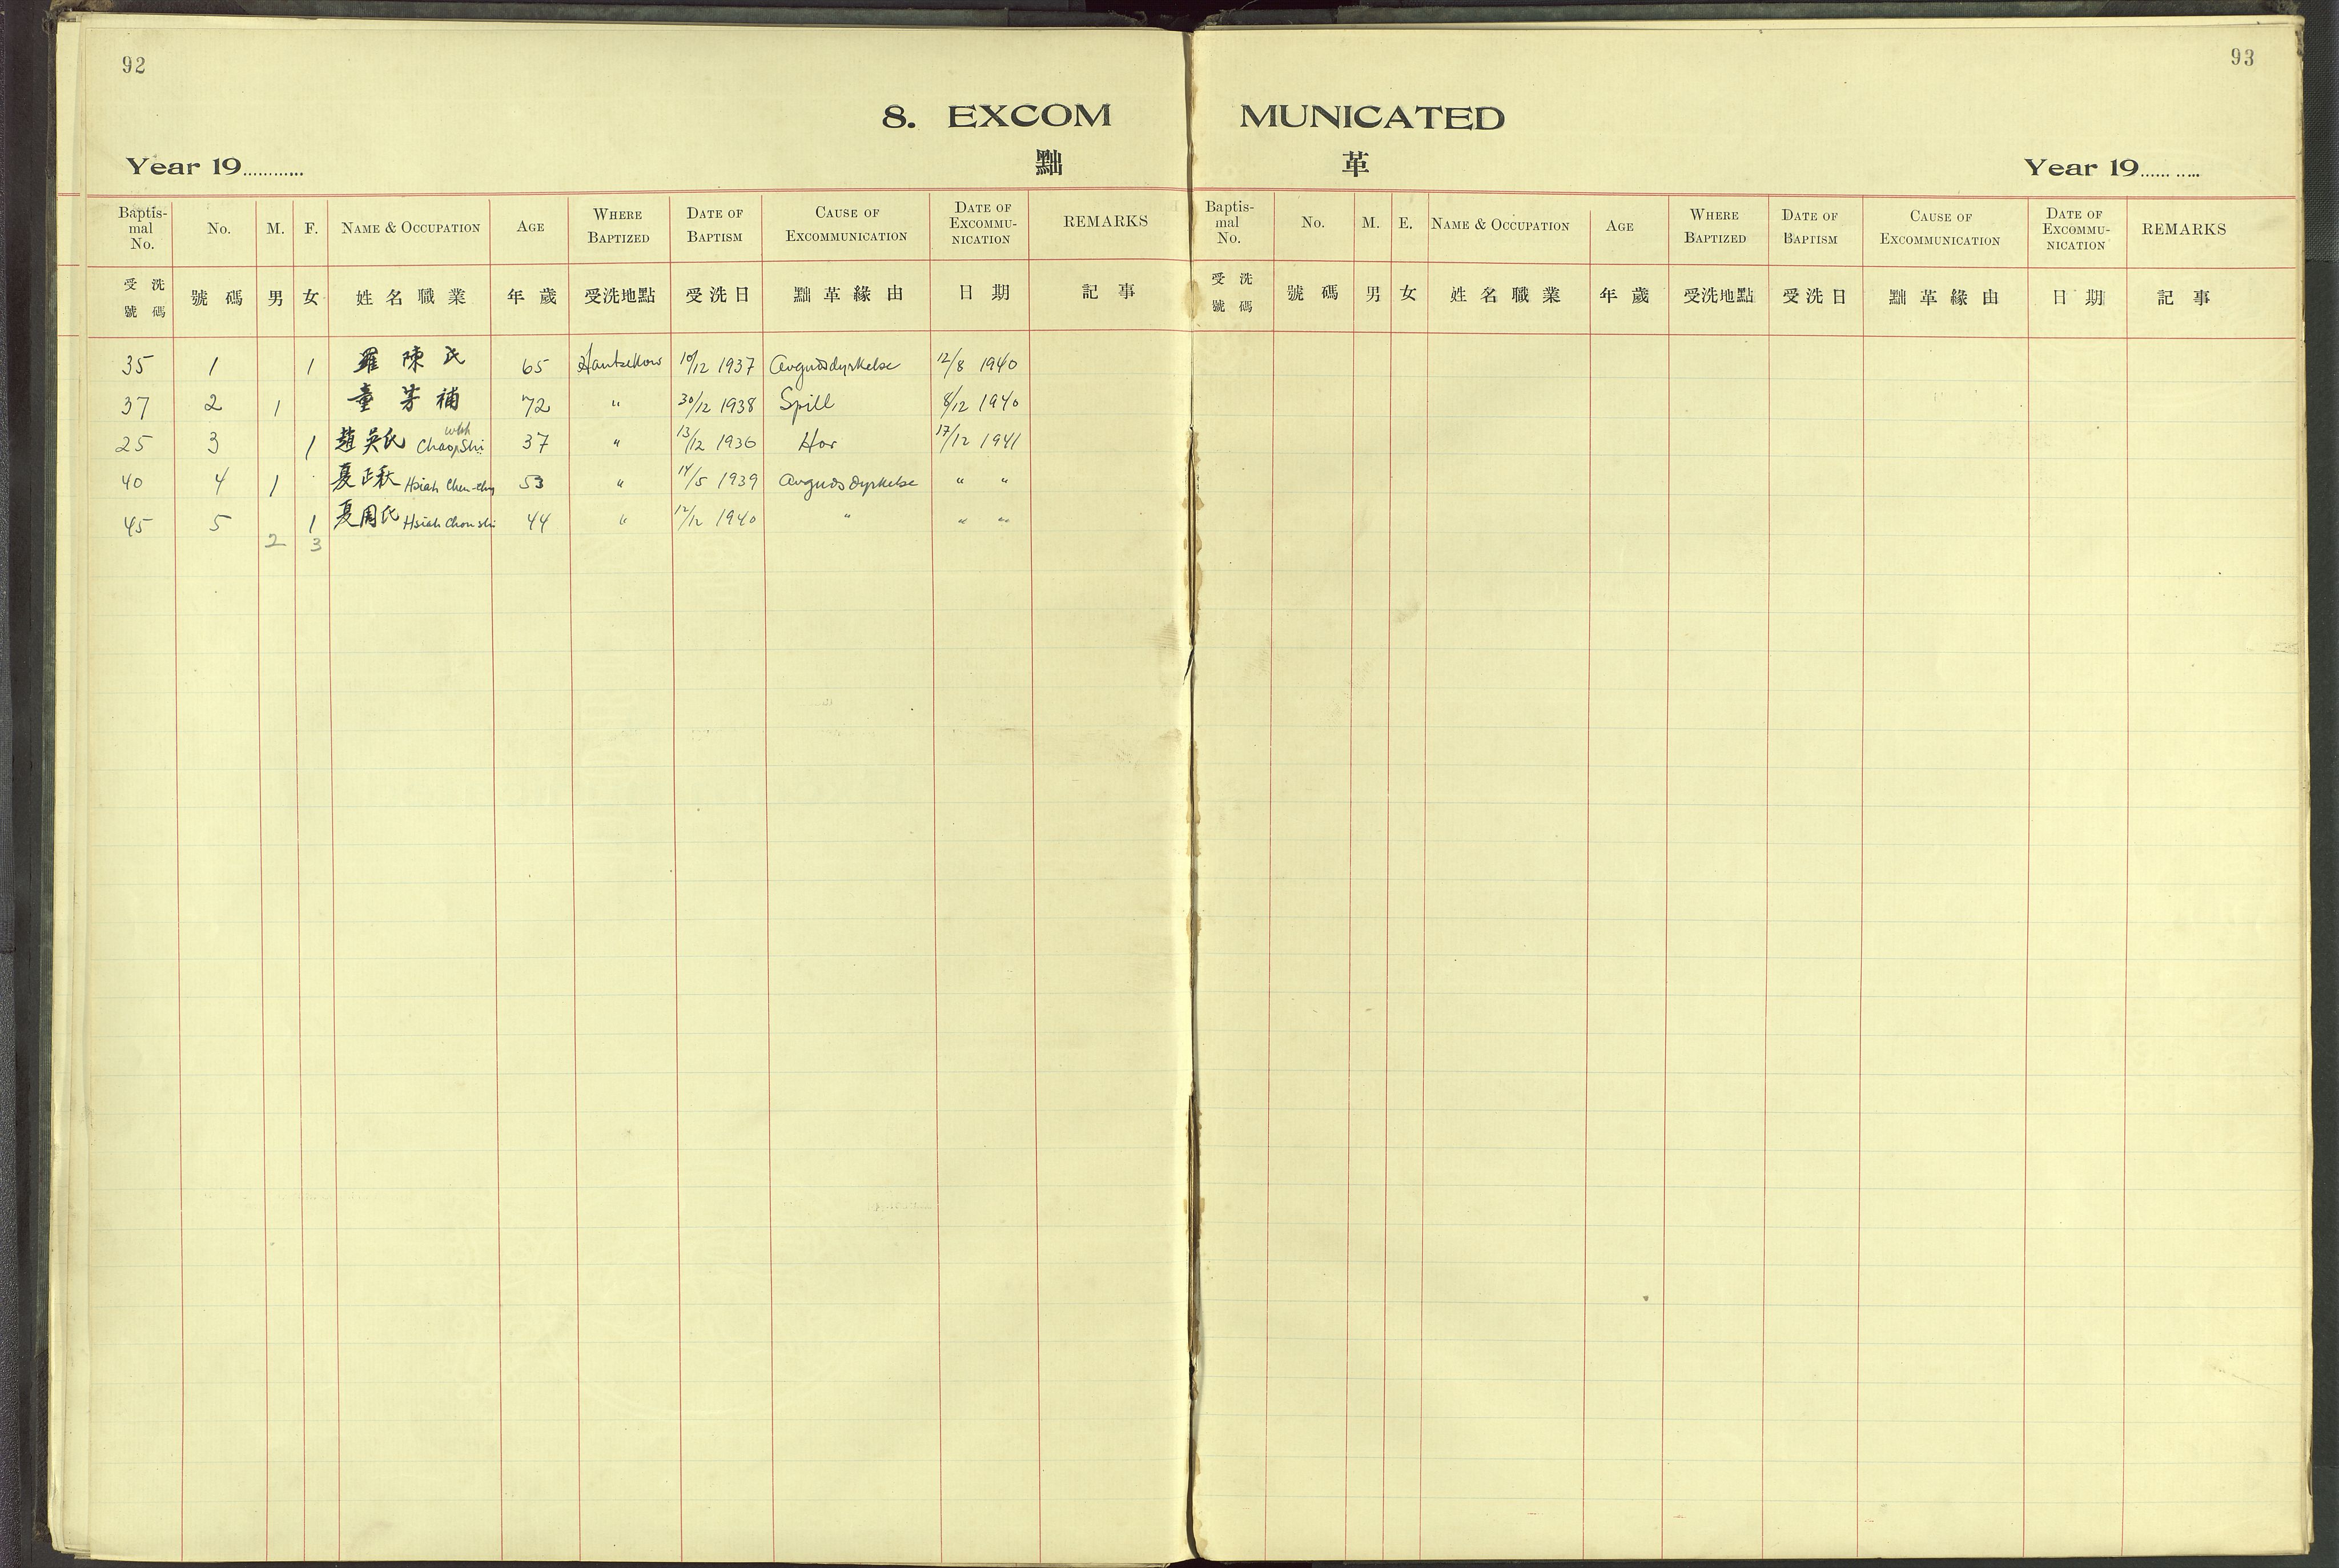 92
93
8. EXCOM MUNICATED
Year 19............ 黜 革 Year 19...... .....
Baptis-mal No. No. M. F. NAME & OCCUPATION AGE WHERE BAPTIZED DATE OF BAPTISM CAUSE OF EXCOMMUNICATION DATE OF EXCOMMU-NICATION REMARKS
受洗號碼 號碼 男 女 姓名職業 年歲 受洗地點 受洗日 黜革緣由 日期 記事
35 1 1 羅陳氏 65 Hantzekow 10/12 1937 Avgudsdyrkelse 12/8 1940
37 2 1 童芳補 72 " 30/12 1938 Spill 8/12 1940
25 3 1 趙吳氏 Chao Shi 37 " 13/12 1936 Hor 17/12 1941
40 4 1 夏正秋 Hsiah Chen- 53 " 14/5 1939 Avgudsdyrkelse " "
45 5 1 夏周氏 Hsiah Chou shi 44 " 12/12 1940 " " "
2 3
Baptis-mal No. No. M. E. NAME & OCCUPATION AGE WHERE BAPTIZED DATE OF BAPTISM CAUSE OF EXCOMMUNICATION DATE OF EXCOMMU-NICATION REMARKS
受洗號碼 號碼 男 女 姓名職業 年歲 受洗地點 受洗日 黜革緣由 日期 記事